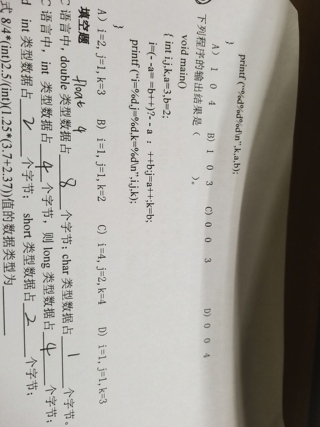 printf("%d%d%d\n",k,a,b);
}
A) 1 0 4 B) 1 0 3 C) 0 0 3 D) 0 0 4
下列程序的输出结果是( )。
void main()
{ int i,j,k,a=3,b=2;
i=(--a==b++)?--a:++b;j=a++;k=b;
printf("i=%d,j=%d,k=%d\n",i,j,k);
}
A) i=2, j=1, k=3 B) i=1, j=1, k=2 C) i=4, j=2, k=4 D) i=1, j=1, k=3
填空题
float 4
C 语言中, double 类型数据占 8 个字节; char 类型数据占 1 个字节。
C 语言中, int 类型数据占 4 个字节, 则 long 类型数据占 4 个字节;
d int 类型数据占 2 个字节; short 类型数据占 2 个字节;
式 8/4*(int)2.5/(int)(1.25*(3.7+2.37))值的数据类型为